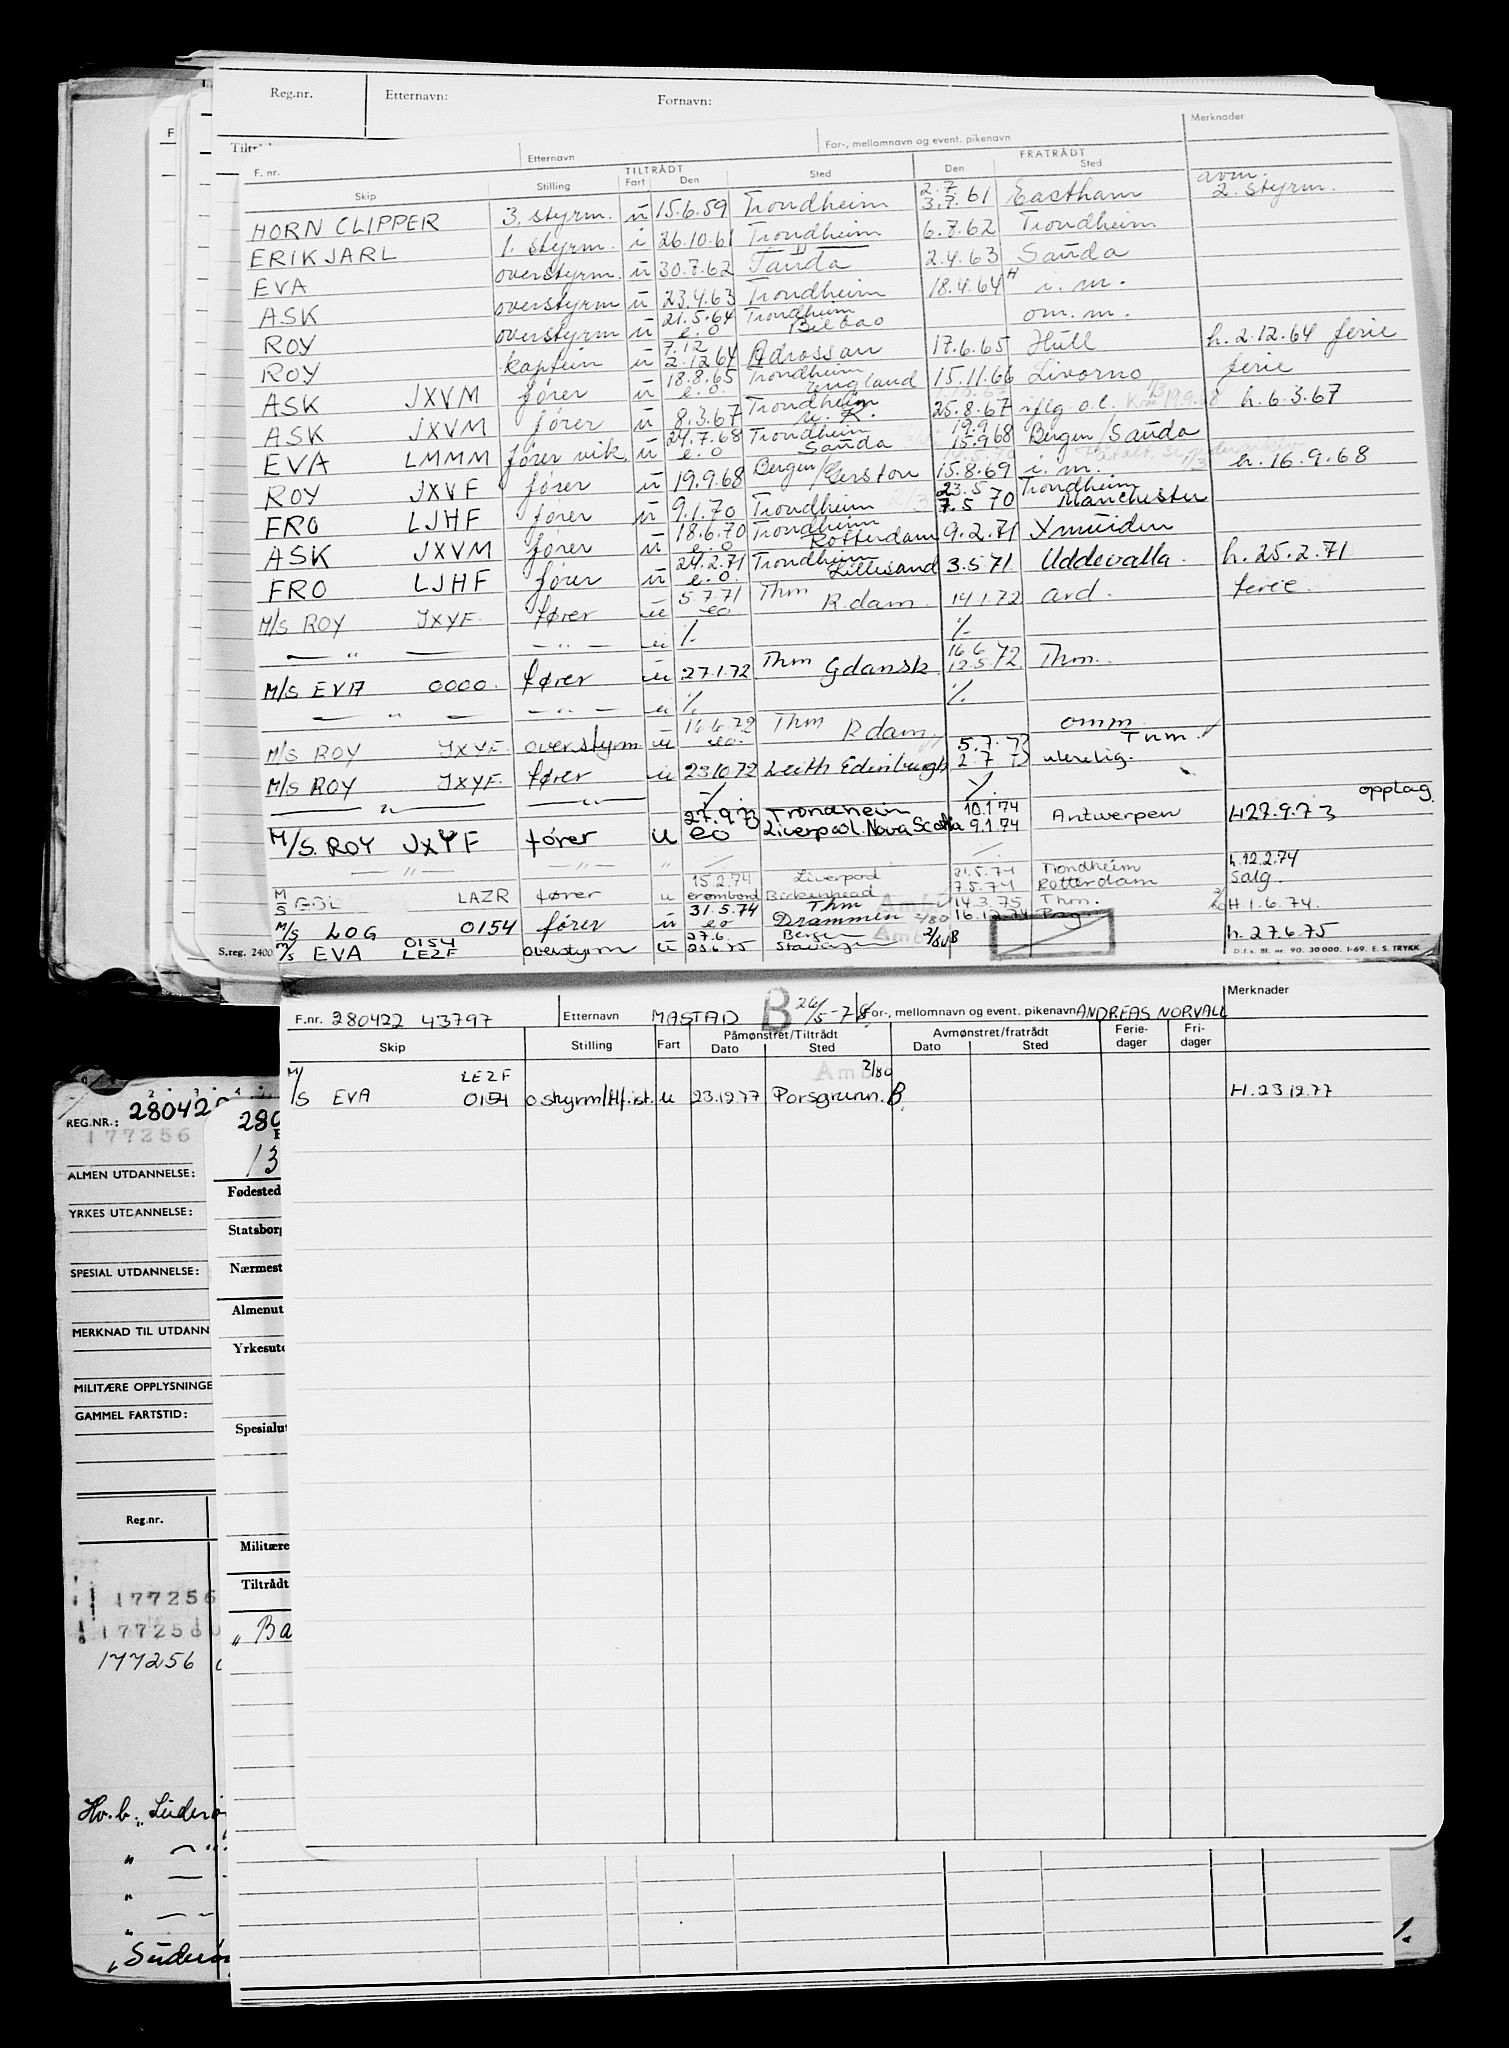 Reg.nr. Etternavn: Fornavn:
F. nr. Etternavn For-, mellomnavn og event. pikenavn Merknader
TILTRÅDT FRATRÅDT
Skip Stilling Fart Den Sted Den Sted
avm.
HORN CLIPPER 3. styrm. u 15.6.59 Trondheim 2.7 3.7.61 Eastham 2. styrm.
ERIK JARL 1. styrm. i 26.10.61 Trondheim 6.8.62 Trondheim
EVA overstyrm. u 30.7.62 Sauda 2.4.63 Sauda
ASK overstyrm u 23.4.63 Trondheim 18.4.64 H i. m.
ROY overstyrm u 21.5.64 e.o Trondheim Bilbao om. m.
ROY kaptein u 7.12 2.12 64 Adrossan 17.6.65 Hull h. 2.12.64 ferie
ASK JXVM fører u 18.8.65 e.o. Trondheim England 15.11.66 Livorno ferie
ASK JXVM fører u 8.3.67 Trondheim U.K. 25.8.67 iflg. o.l. h. 6.3.67
EVA LMMM fører vik. u 24.7.68 e.o Trondheim Sauda 19.9 15.9 68 Bergen/Sauda
ROY JXVF fører u 19.9.68 Bergen/Gerston 15.8.69 i. m. h. 16.9.68
FRO LJHF fører u 9.1.70 Trondheim 23.5 7.5 70 Trondheim Manchester
ASK JXVM fører u 18.6.70 e.o Trondheim Rotterdam 9.2.71 Ymuiden
FRO LJHF fører u 24.2.71 e.o. Trondheim Lillesand 3.5.71 Uddevalla. h. 25.2.71
M/S ROY JXYF. fører u 5.7.71 eo Thm R.dam. 14.1.72 ard. ferie.
— " — — " — u ./. ./.
M/S EVA 0000. fører u 27.1.72 Thm Gdansk 16.6 12.5 72 Thm.
— " — — " — u ./. ./.
M/S ROY JXYF. overstyrm. u 16.6.72 eo. Thm R.dam. omm
M/S ROY JXYF. fører u 23.10.72 Leith Edinburgh 5.7.73 2.7.73 Thm. uleselig.
— " — — " — ./. ./. opplag.
M/S. ROY JXYF fører u 27.9.73 eo Trondheim Liverpool. Nova Scotia 10.1.74 9.1.74 Antwerpen H27.9.73
— " — — " — " ./. ./.
M/S LAZR fører u 15.2.74 erombord Liverpool Birkenhead 31.5.74 7.5.74 Trondheim Rotterdam h.12.2.74 salg.
M/S LOG 0154 fører u 31.5.74 eo Thm Drammen 14.3.75 16.12.74 Thm. H 1.6.74.
M/S EVA 0154 LEZF overstyrm u 27.6. 23.6.75 Bergen Stavanger 2/80 B h. 27.6.75
S.reg. 2400 D.f.s. Bl. nr. 90. 30 000. 1-69. E. S. TRYKK
F.nr. 280422 43797 Etternavn MASTAD B 26/5-78 For-, mellomnavn og event. pikenavn ANDREAS NORVALL Merknader
Skip Stilling Fart Påmønstret/Tiltrådt Dato Sted Avmønstret/fratrådt Dato Sted Ferie-dager Fri-dager
Amb 2/80
M/S EVA LEZF 0154 o styrm/H/.ist. u 23.12.77 Porsgrunn. B. H. 23.12.77
REG.NR.: 280422
177256
ALMEN UTDANNELSE:
YRKES UTDANNELSE:
SPESIAL UTDANNELSE:
MERKNAD TIL UTDANN
MILITÆRE OPPLYSNINGE
GAMMEL FARTSTID:
Reg.nr.
177256
177256
177256
Hv.b. „Suderø
„ — „
„ —
„ —
„Suderø
280
13
Fødested
Statsborg
Nærmest
Almenut
Yrkesutd
Spesialut
Militære
Tiltrådt
„ Ba
1.